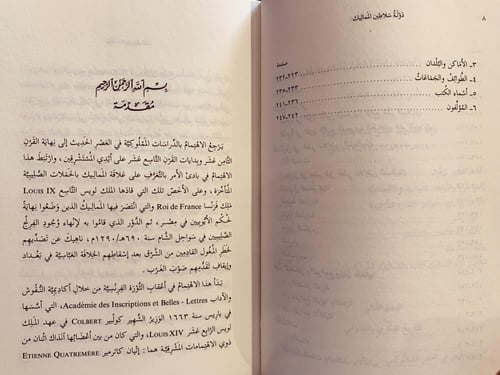 ٨
دَوْلَةُ سَلاطِين المَماليك
صفحة
٣ـ الأَماكِن والبُلْدان
٢٢٣-٢٣٢
٤ـ الطَّوائِفُ والجَمَاعَاتُ
٢٣٣-٢٣٥
٥ـ أَسْماءُ الكُتب
٢٣٦-٢٤١
٦ـ المُؤلِّفون
٢٤٢-٢٤٧
بِسْمِ اللَّهِ الرَّحْمَنِ الرَّحِيمِ
مُقَدِّمَة
يَرْجِعُ الاهْتِمامُ بالدِّراسات المَمْلُوكِيَّة في العَصْرِ الحَديثِ إلى نِهايَة القَرْنِ
الثّامن عَشَر وبِدايات القَرْنِ التَّاسِع عَشَر على أَيْدِي المُسْتَشْرِقين، وارْتَبَطَ هذا
الاهْتِمام في بادئ الأَمر بالتَّعَرُّفِ على علاقَة المَمالِيكِ بالحَمَلات الصَّلِيبيَّة
المُتَأخِّرَة، وعلى الأَخَصّ تلك التي قادَها المَلِك لويس التَّاسِع LOUIS IX
مَلِك فَرَنْسا Roi de France والتي انْتَصَرَ فيها المَمالِيكُ الذين وَضَعُوا نِهايَةً
لحُكْمِ الأَيُّوبيين في مِصْر، ثم الدَّوْر الذي قاموا به لإنْهاء وُجُودِ الفِرِنْج
الصَّلِيبيين في سَواحِل الشَّام سنة ٦٩٠هـ/١٢٩٠م، ناهِيكَ عن تَصَدِّيهم
لخَطَرِ المَغُول القادِمين من الشَّرْق بعد إسْقاطِهم الخِلافَة العَبَّاسِيَّة في بَغْداد
وإيقاف تَقَدُّمِهم صَوْبَ الغَرْب.
بَدَأ هذا الاهْتِمامُ في أَعْقاب الثَّوْرَة الفِرِنْسِيَّة من خلال أكاديميَّة النُّقُوش
والآداب Académie des Inscriptions et Belles - Lettres، التي أسَّسَها
في باريس سنة ١٦٦٣ الوَزيرُ الشَّهير كولْبير COLBERT في عهد المَلِك
لويس الرَّابع عَشَر LOUIS XIV، والتي كان من بين أعْضائِها آنَذَاك اثنان من
ذَوِي الاهْتِمامات المَشْرِقِيَّة هما: إتْيان كاترمير ETIENNE QUATREMÈRE